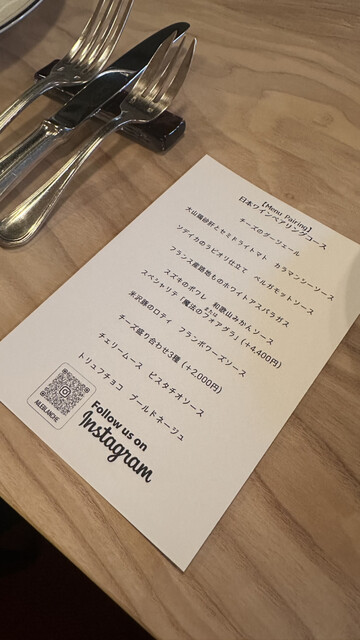 【Menu Pairing】
日本ワインペアリングコース
チーズのグージェール
大山鶏砂肝とセミドライトマト カラマンシーソース
ソデイカのラビオリ仕立て ベルガモットソース
フランス産露地ものホワイトアスパラガス
スズキのポワレ 和歌山みかんソース
スペシャリテ「魔法のフォアグラ」(+4,400円)
または
米沢豚のロティ フランボワーズソース
チーズ盛り合わせ3種(+2,000円)
チェリームース ピスタチオソース
トリュフチョコ ブールドネージュ
AILEBLANCHE
Follow us on
Instagram